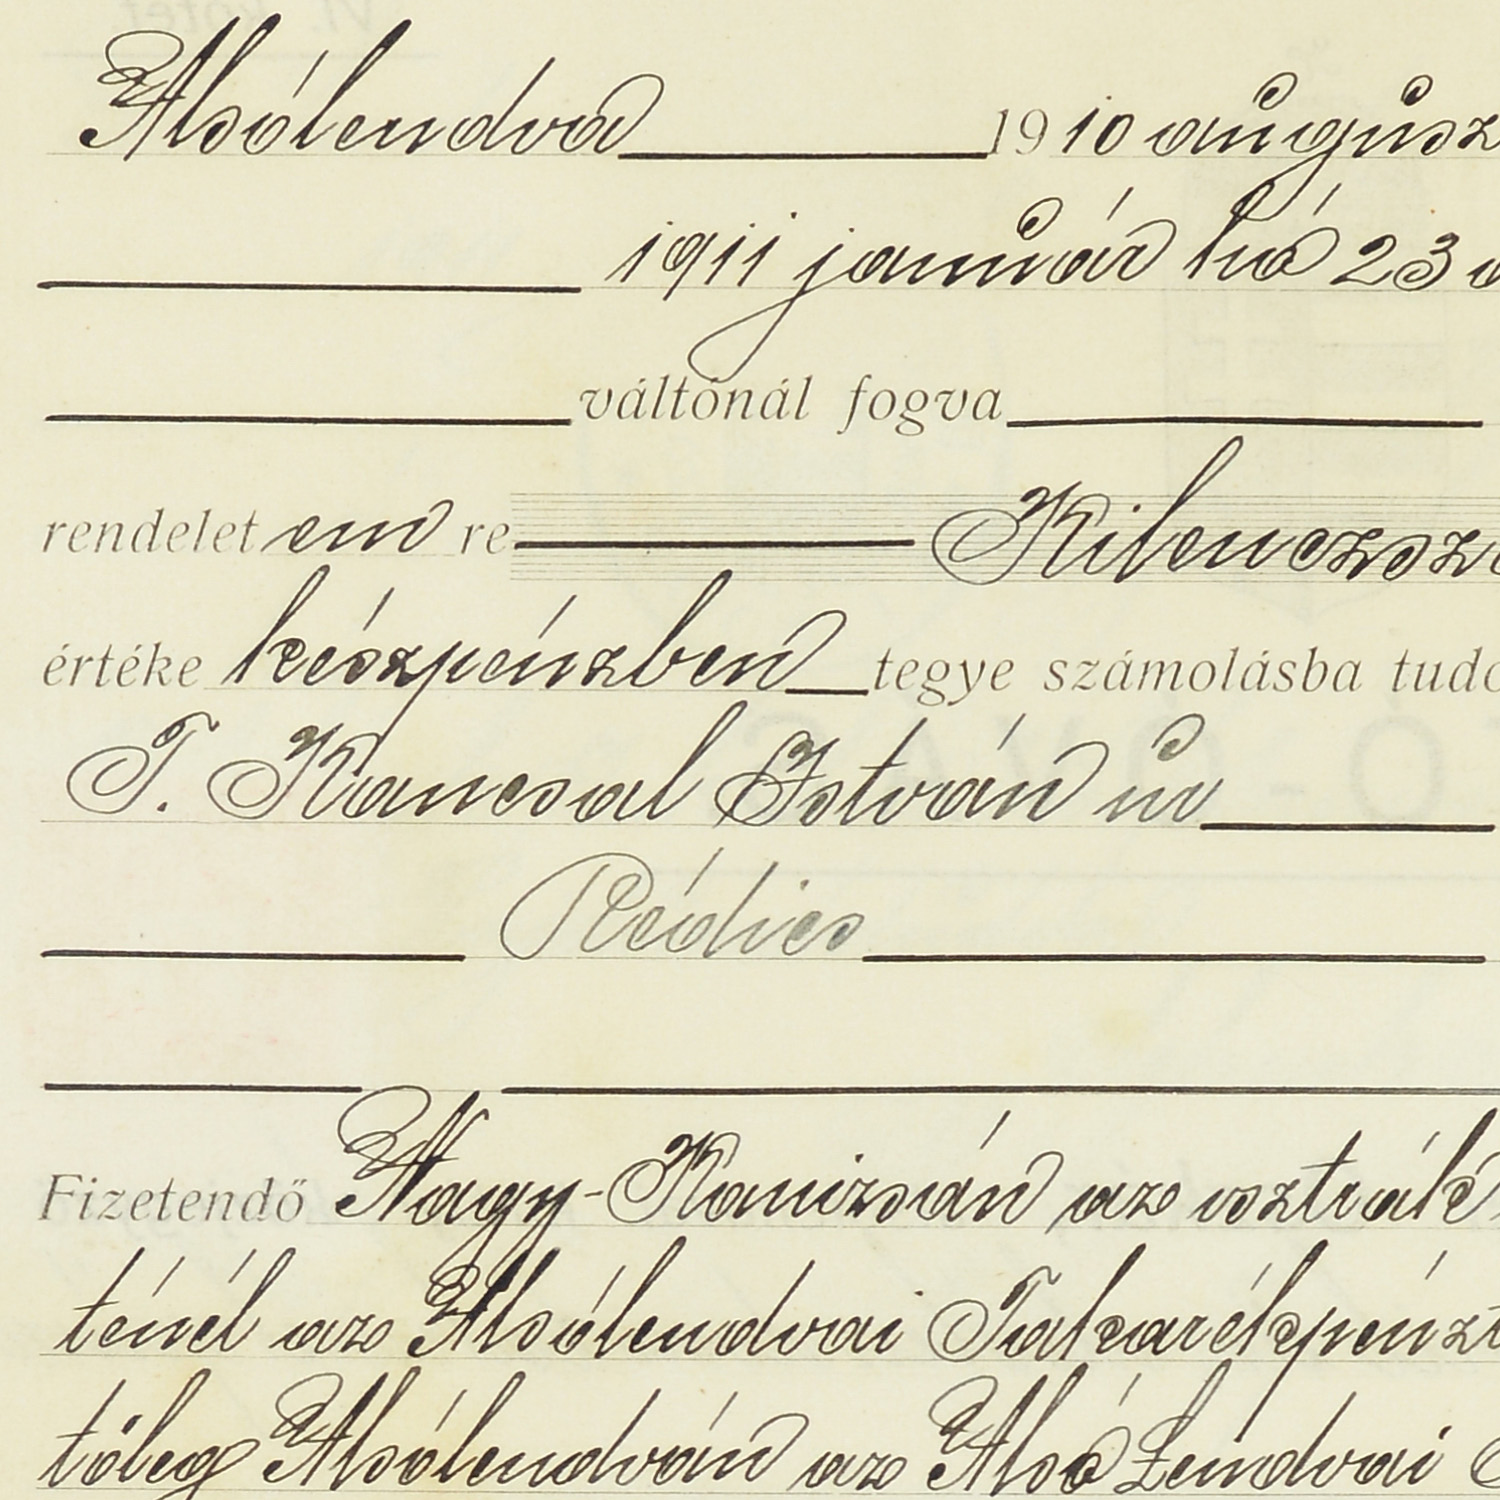 Alsólendva 1910 augusz
1911 január hó 23 a
váltónál fogva
rendelet em re Kilenczszá
értéke készpénzben tegye számolásba tudo
T. Kancsal István úr
Rédics
Fizetendő Nagy-Kanizsán az osztrák
ténél az Alsólendvai Takarékpénzt
tőleg Alsólendván az Alsó Lendvai